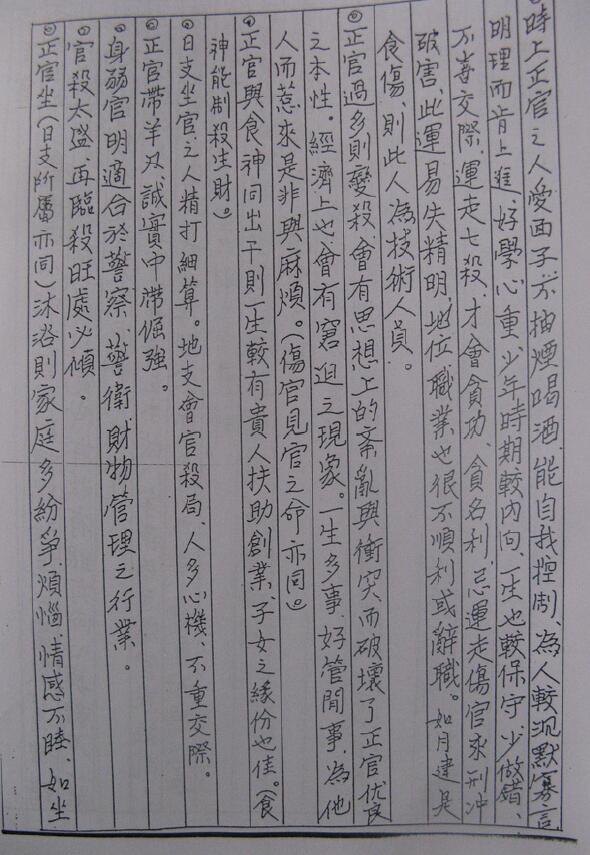 時上正官之人愛面子、不抽煙喝酒、能自我控制、為人較沉默寡言
明理而肯上進、好學心重、少年時期較內向、一生也較保守、少做錯、
不善交際、運走七殺、才會貪功、貪名利、忌運走傷官來刑冲
破害、此運易失精明、地位、職業也很不順利或辭職。如月建是
食傷、則此人為技術人員。
正官過多則變殺、會有思想上的紊亂與衝突、而破壞了正官優良
之本性。經濟上也會有窘迫之現象。一生多事、好管閒事、為他
人而惹來是非與麻煩。(傷官見官之命亦同)
正官與食神同出干則一生較有貴人扶助創業、子女之緣份也佳。(食
神能制殺生財)
日支坐官之人精打細算。地支會官殺局、人多心機、不重交際。
正官帶羊刃、誠實中帶倔強。
身弱官明適合於警察、警衛、財物管理之行業。
官殺太盛、再臨殺旺處必傾。
正官坐(日支所屬亦同)沐浴則家庭多紛爭、煩惱、情感不睦、如坐